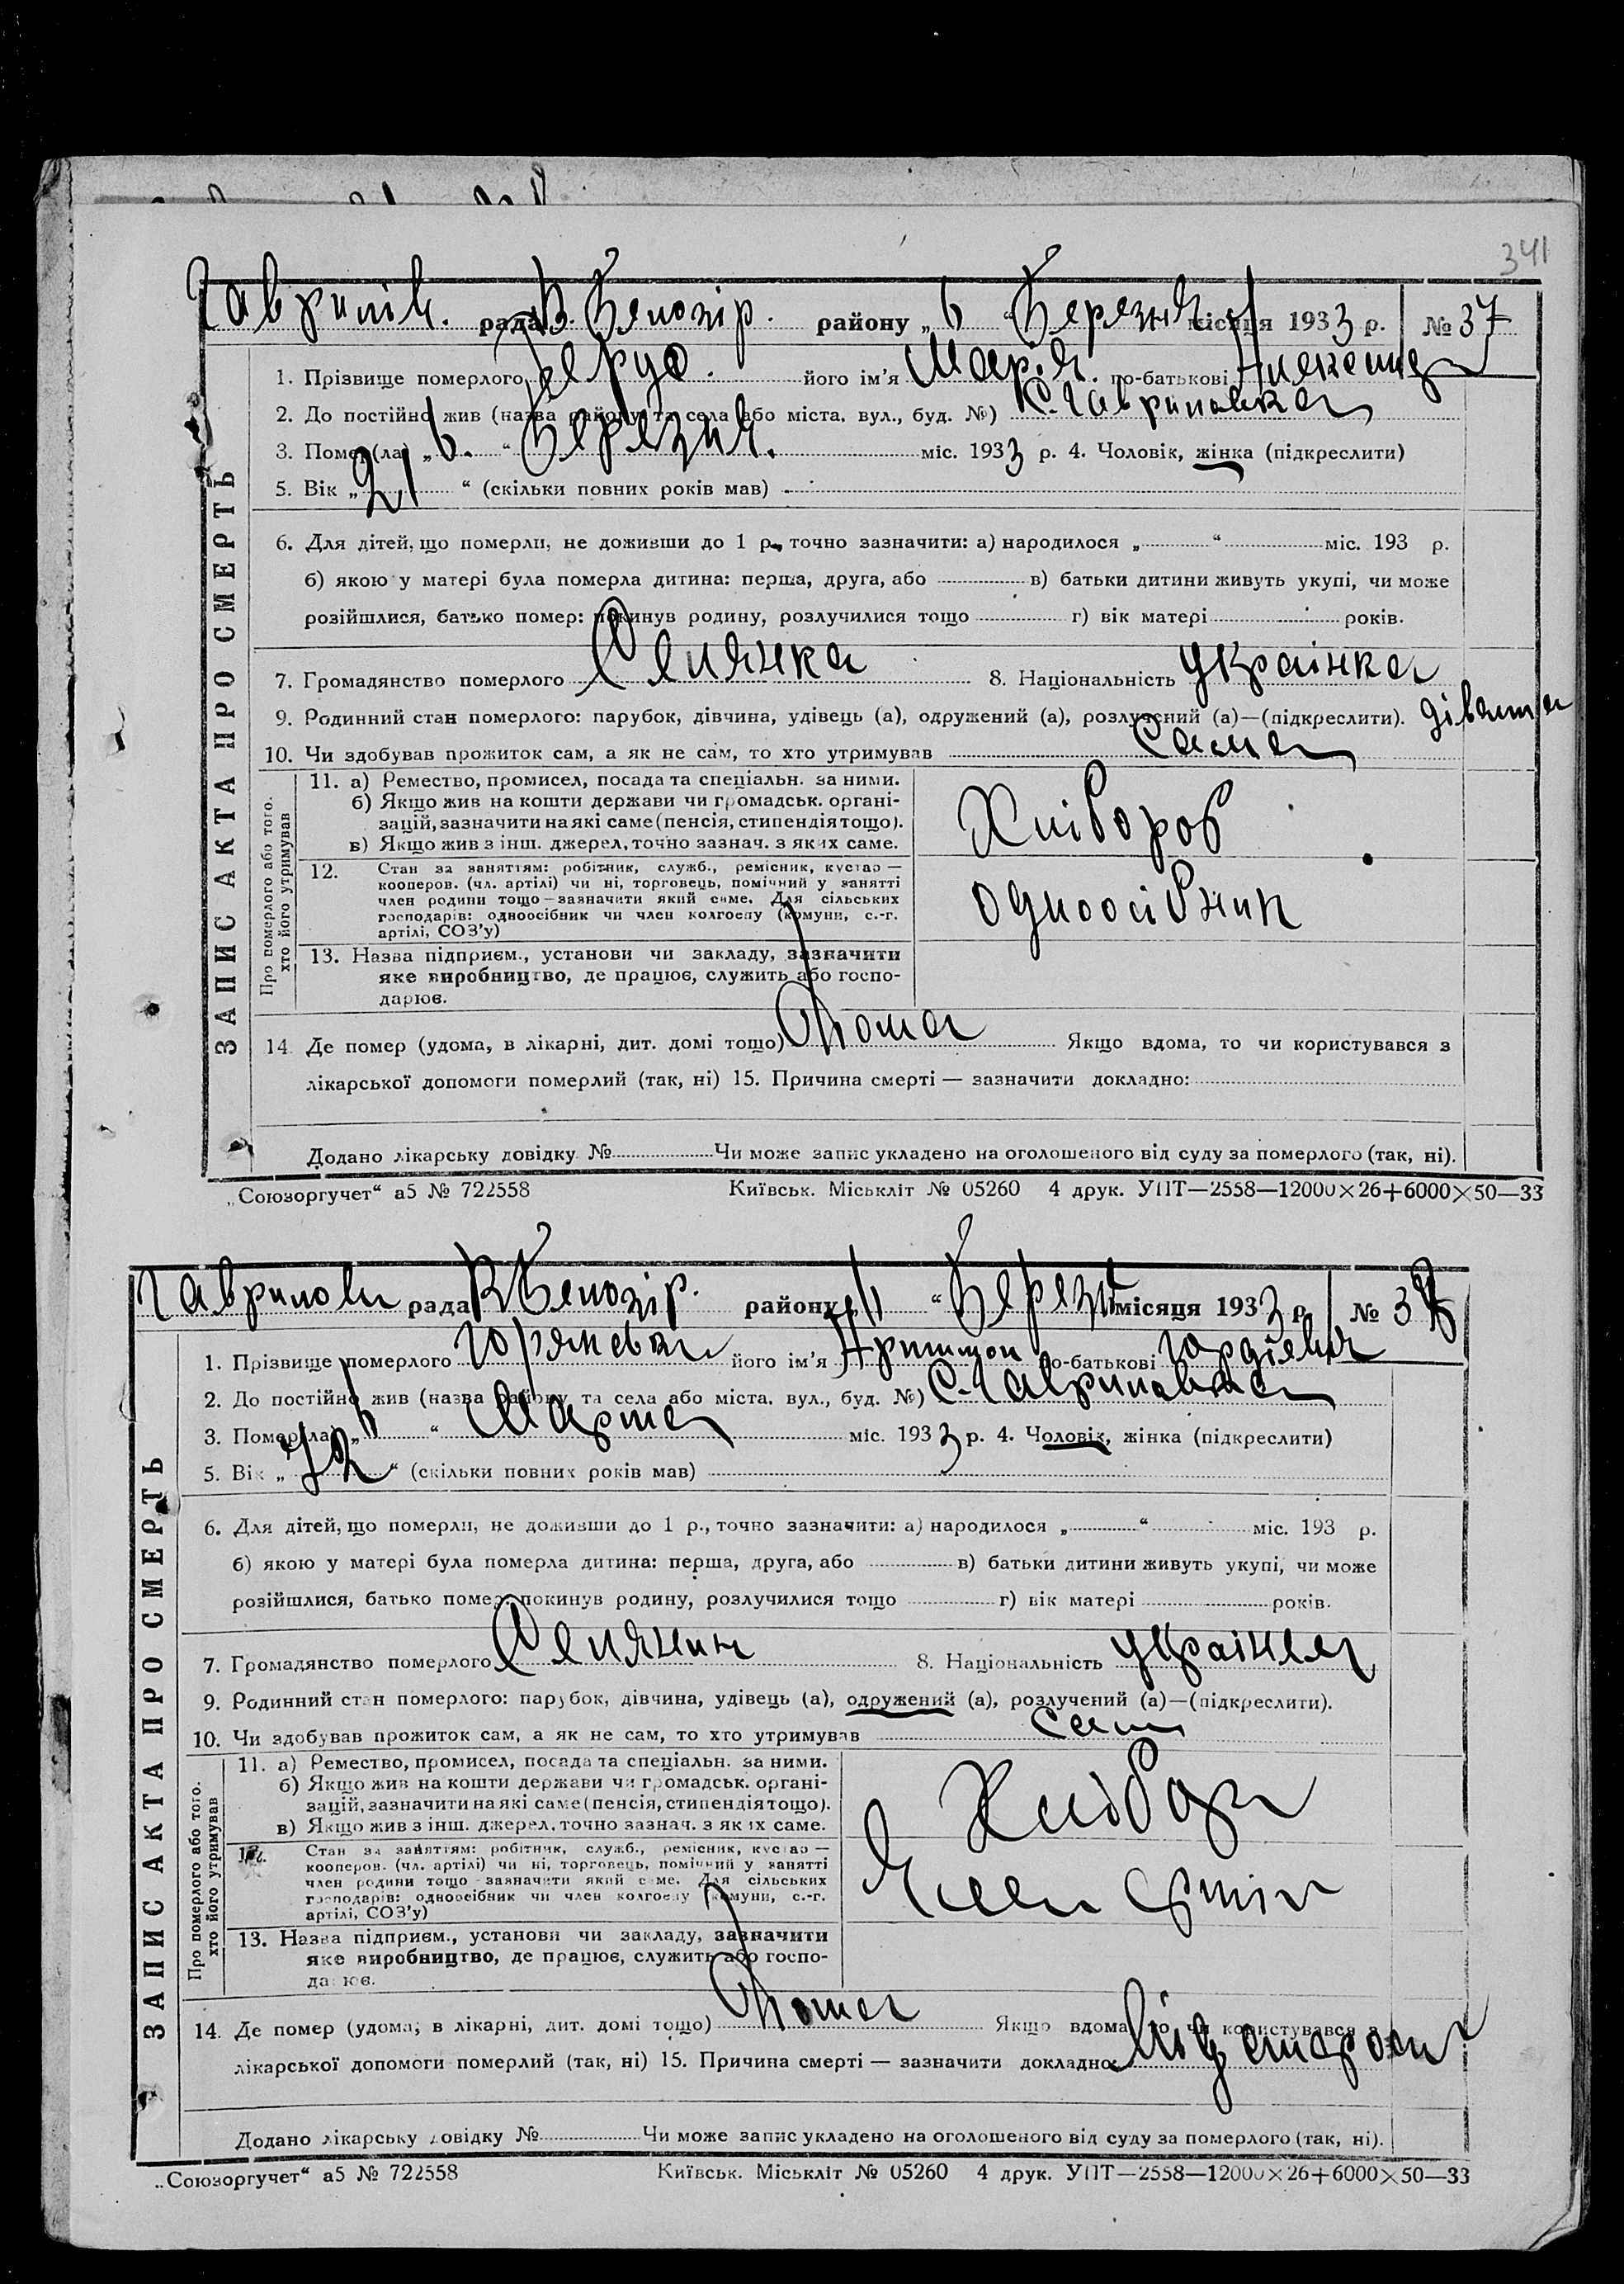 341
Гаврилів. рада В. Білозір. району „6“ Березня місяця 1933 р. № 37
ЗАПИС АКТА ПРО СМЕРТЬ
1. Прізвище померлого його ім'я Марія. по-батькові
2. До постійно жив (назва району та села або міста, вул., буд. №) С. Гаврилавка
3. Помер(ла) „6.“ Березня. міс. 1933 р. 4. Чоловік, жінка (підкреслити)
5. Вік „21“ (скільки повних років мав)
6. Для дітей, що померли, не доживши до 1 р., точно зазначити: а) народилося „ “ міс. 193 р.
б) якою у матері була померла дитина: перша, друга, або в) батьки дитини живуть укупі, чи може
розійшлися, батько помер: покинув родину, розлучилися тощо г) вік матері років.
7. Громадянство померлого Селянка 8. Національність Українка
9. Родинний стан померлого: парубок, дівчина, удівець (а), одружений (а), розлучений (а)—(підкреслити).
10. Чи здобував прожиток сам, а як не сам, то хто утримував Сама
Про померлого або того, хто його утримував
11. а) Ремество, промисел, посада та спеціальн. за ними.
б) Якщо жив на кошти держави чи громадськ. органі-
зацій, зазначити на які саме (пенсія, стипендія тощо).
в) Якщо жив з інш. джерел, точно зазнач. з яких саме.
Хлібороб
12. Стан за заняттям: робітник, служб., ремісник, кустар —
кооперов. (чл. артілі) чи ні, торговець, помічний у занятті
член родини тощо — зазначити який саме. Для сільських
господарів: одноосібник чи член колгоспу (комуни, с.-г.
артілі, СОЗ'у)
Одноосібник
13. Назва підприєм., установи чи закладу, зазначити
яке виробництво, де працює, служить або госпо-
дарює.
14. Де помер (удома, в лікарні, дит. домі тощо) Дома Якщо вдома, то чи користувався з
лікарської допомоги померлий (так, ні) 15. Причина смерті — зазначити докладно:
Додано лікарську довідку № Чи може запис укладено на оголошеного від суду за померлого (так, ні).
„Союзоргучет“ а5 № 722558 Київськ. Міськліт № 05260 4 друк. УПТ—2558—12000×26+6000×50—33
рада В Білозір. району місяця 1933 р. №
ЗАПИС АКТА ПРО СМЕРТЬ
1. Прізвище померлого його ім'я по-батькові
2. До постійно жив (назва району та села або міста, вул., буд. №) С. Гаврилавка
3. Помер(ла) „ “ Марта міс. 1933 р. 4. Чоловік, жінка (підкреслити)
5. Вік „72“ (скільки повних років мав)
6. Для дітей, що померли, не доживши до 1 р., точно зазначити: а) народилося „ “ міс. 193 р.
б) якою у матері була померла дитина: перша, друга, або в) батьки дитини живуть укупі, чи може
розійшлися, батько помер: покинув родину, розлучилися тощо г) вік матері років.
7. Громадянство померлого Селянин 8. Національність
9. Родинний стан померлого: парубок, дівчина, удівець (а), одружений (а), розлучений (а)—(підкреслити).
10. Чи здобував прожиток сам, а як не сам, то хто утримував сам
Про померлого або того, хто його утримував
11. а) Ремество, промисел, посада та спеціальн. за ними.
б) Якщо жив на кошти держави чи громадськ. органі-
зацій, зазначити на які саме (пенсія, стипендія тощо).
в) Якщо жив з інш. джерел, точно зазнач. з яких саме.
12. Стан за заняттям: робітник, служб., ремісник, кустар —
кооперов. (чл. артілі) чи ні, торговець, помічний у занятті
член родини тощо — зазначити який саме. Для сільських
господарів: одноосібник чи член колгоспу (комуни, с.-г.
артілі, СОЗ'у)
13. Назва підприєм., установи чи закладу, зазначити
яке виробництво, де працює, служить або госпо-
дарює.
14. Де помер (удома, в лікарні, дит. домі тощо) Дома Якщо вдома, то чи користувався з
лікарської допомоги померлий (так, ні) 15. Причина смерті — зазначити докладно: Від старости
Додано лікарську довідку № Чи може запис укладено на оголошеного від суду за померлого (так, ні).
„Союзоргучет“ а5 № 722558 Київськ. Міськліт № 05260 4 друк. УПТ—2558—12000×26+6000×50—33